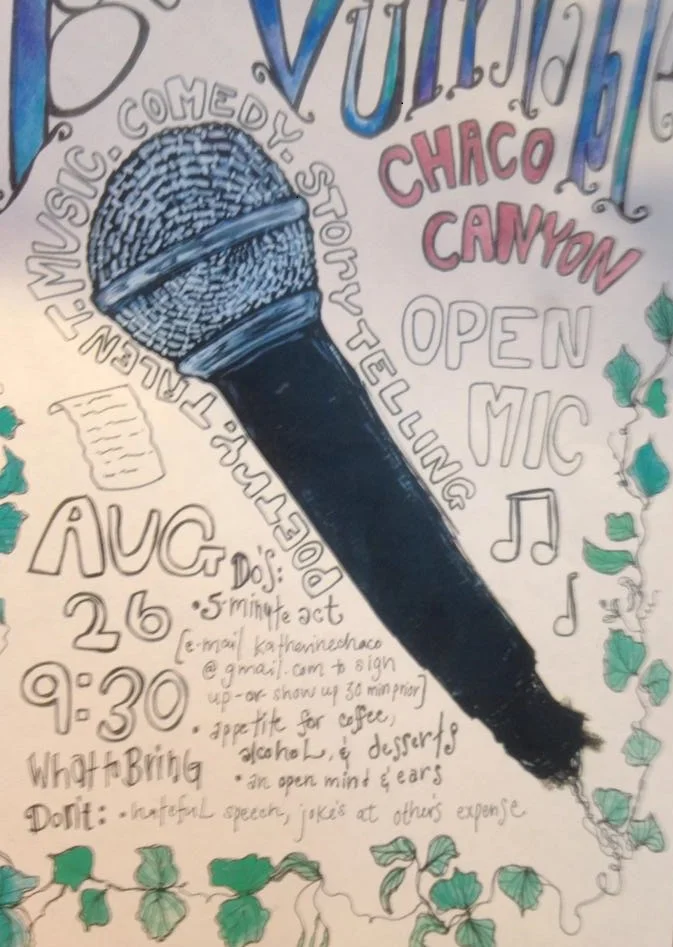 Be Vulnerable
CHACO
CANYON
OPEN
MIC
MUSIC. COMEDY. STORYTELLING
POETRY. TALENT.
AUG
26
9:30
What to Bring
Do's:
• 5-minute act
[e-mail katherinechaco
@gmail.com to sign
up -or- show up 30 min prior]
• appetite for coffee,
alcohol, & desserts
• an open mind & ears
Don't: • hateful speech, jokes at others expense